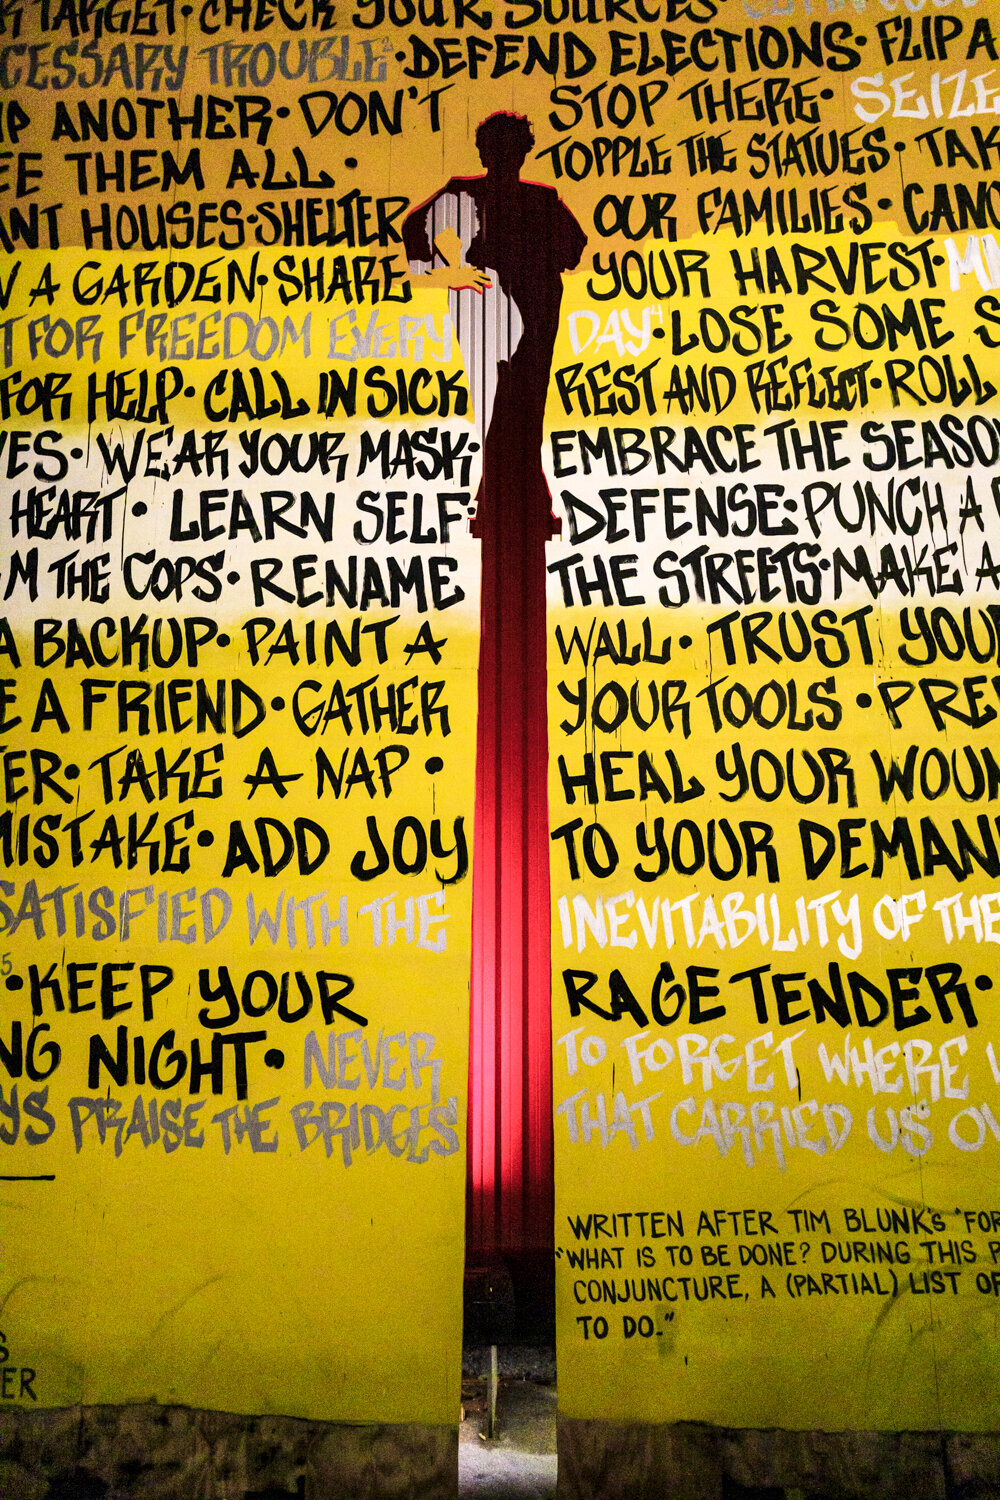 TARGET · CHECK YOUR SOURCES ·
CESSARY TROUBLE² · DEFEND ELECTIONS · FLIP A
ANOTHER · DON'T STOP THERE · SEIZE
THEM ALL · TOPPLE THE STATUES · TAK
ANT HOUSES · SHELTER OUR FAMILIES · CANC
A GARDEN · SHARE YOUR HARVEST ·
FOR FREEDOM EVERY DAY⁴ · LOSE SOME S
FOR HELP · CALL IN SICK REST AND REFLECT · ROLL
YES · WEAR YOUR MASK · EMBRACE THE SEASO
HEART · LEARN SELF · DEFENSE · PUNCH A
M THE COPS · RENAME THE STREETS · MAKE A
A BACKUP · PAINT A WALL · TRUST YOU
E A FRIEND · GATHER YOUR TOOLS · PRE
ER · TAKE A NAP · HEAL YOUR WOUN
MISTAKE · ADD JOY TO YOUR DEMAN
SATISFIED WITH THE INEVITABILITY OF THE
5 · KEEP YOUR RAGE TENDER ·
NG NIGHT · NEVER TO FORGET WHERE
YS PRAISE THE BRIDGES THAT CARRIED US OV
WRITTEN AFTER TIM BLUNK's "FOR
"WHAT IS TO BE DONE? DURING THIS P
CONJUNCTURE, A (PARTIAL) LIST OF
TO DO."
S
ER